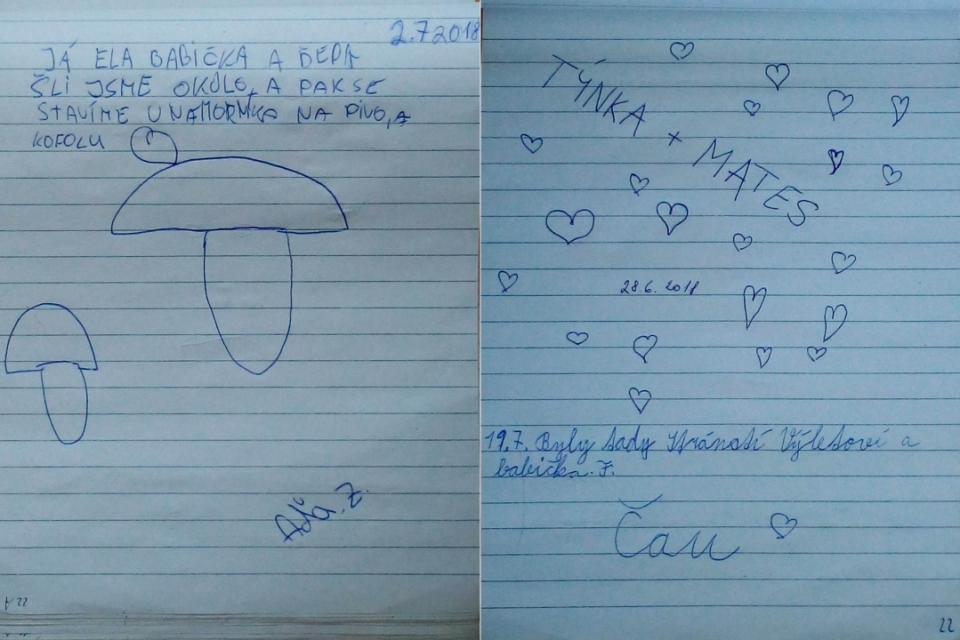 2.7 2018
JÁ ELA BABIČKA A DĚDA
ŠLI JSME OKOLO, A PAK SE
STAVÍME U NÁMORNIKA NA PIVO, A
KOFOLU
Z.
22
TÝNKA + MATES
28.6. 2018
19.7. Byly tady Stránští Výletoví a
babička J.
Čau
22